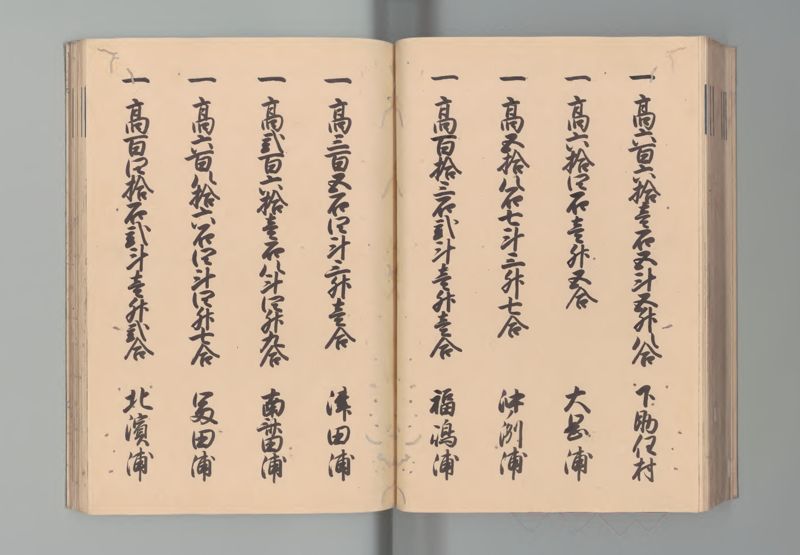 一 高六百六拾壱石五斗五升八合 下助任村
一 高六拾四石壱升五合 大岩浦
一 高五拾八石七斗三升七合 沖洲浦
一 高百拾三石弐斗壱升壱合 福嶋浦
一 高三百五石四斗三升壱合 津田浦
一 高弐百六拾壱石八斗四升九合 南斎田浦
一 高六百八拾六石四斗四升七合 田浦
一 高百四拾石弐斗壱升弐合 北濱浦